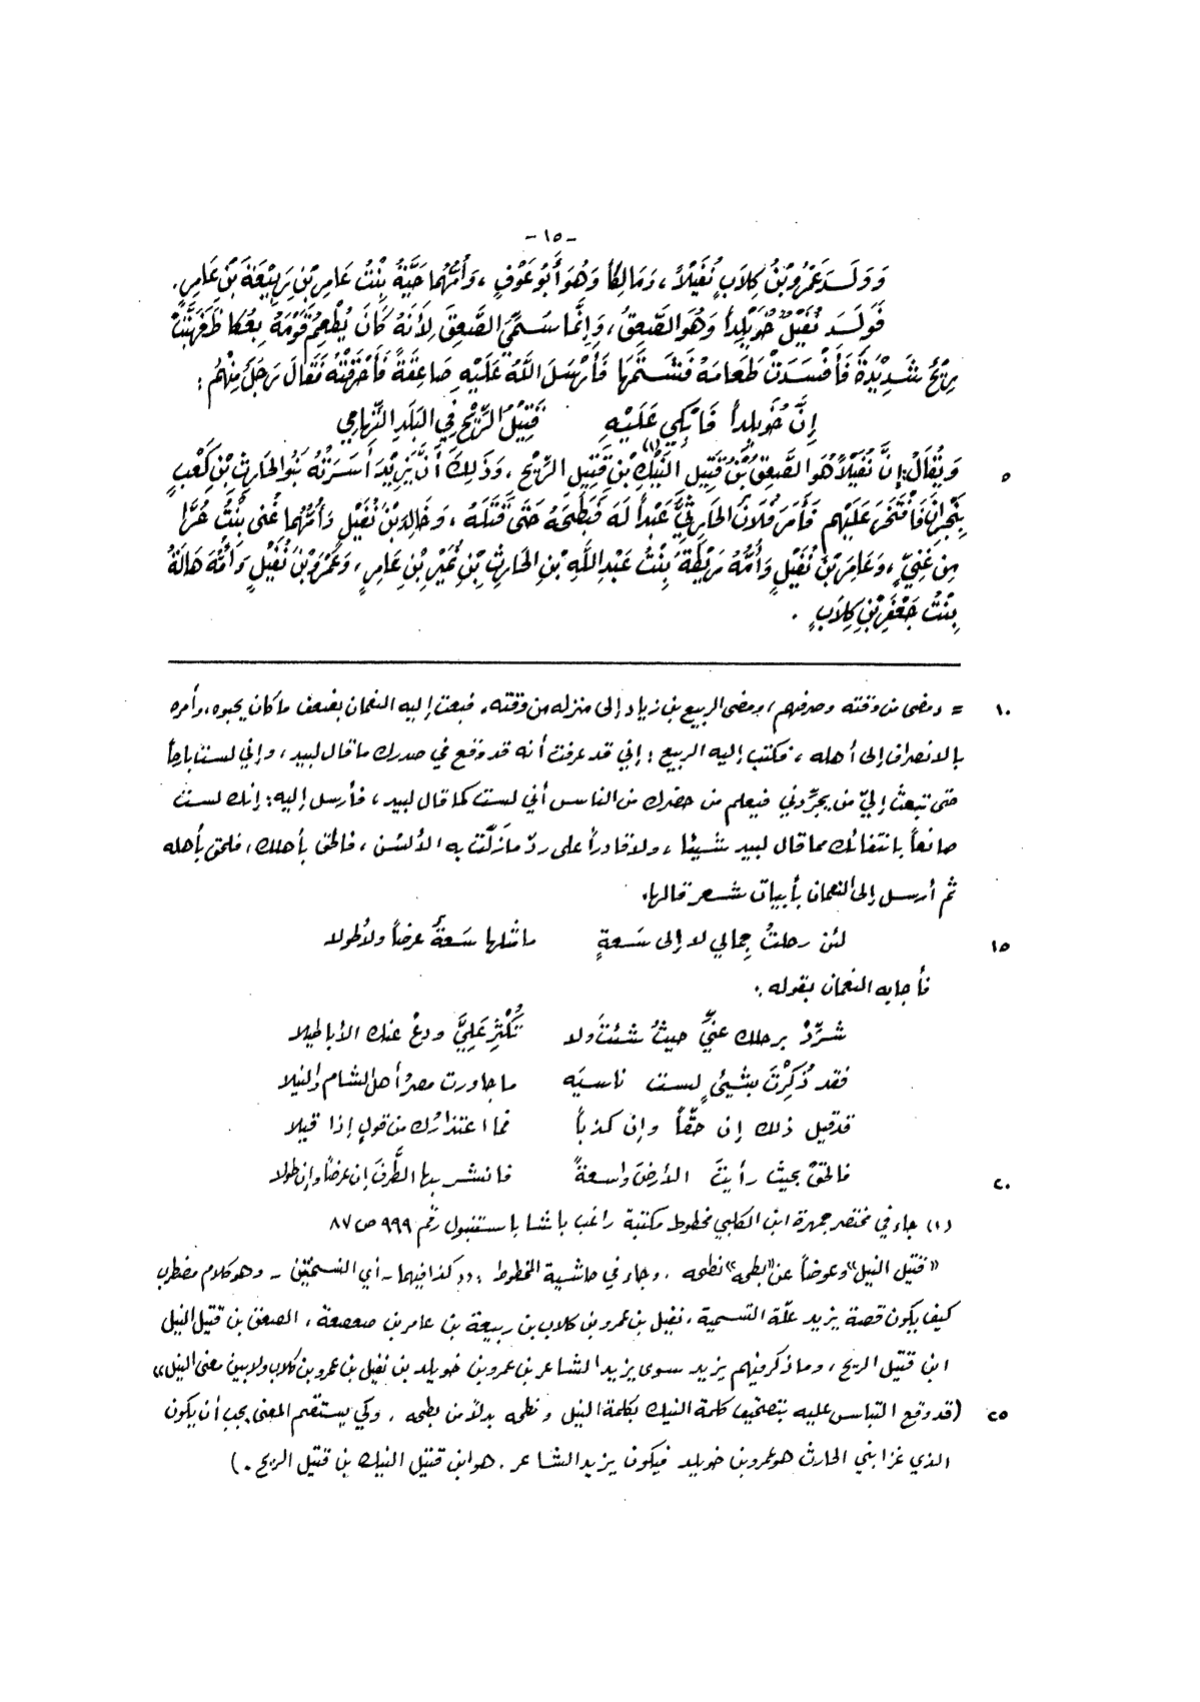 -١٥-
وَوَلَدَ عَمْرُو بْنُ كِلَابٍ نُفَيْلاً، وَمَالِكاً وَهُوَ أَبُو عَوْفٍ، وَأُمُّهُمَا حَيَّةُ بِنْتُ عَامِرِ بْنِ رَبِيْعَةَ بْنِ عَامِرٍ.
فَوَلَدَ نُفَيْلٌ خُوَيْلِداً وَهُوَ الصَّعِقُ، وَإِنَّمَا سُمِّيَ الصَّعِقَ لِأَنَّهُ كَانَ يُطْعِمُ قَوْمَهُ بِعُكَاظَ فَهَبَّتْ
رِيْحٌ شَدِيْدَةٌ فَأَفْسَدَتْ طَعَامَهُ فَشَتَمَهَا فَأَرْسَلَ اللَّهُ عَلَيْهِ صَاعِقَةً فَأَحْرَقَتْهُ فَقَالَ رَجُلٌ مِنْهُم :
إِنَّ خُوَيلِداً فَابْكِي عَلَيْهِ قَتِيْلُ الرِّيْحِ فِي البَلَدِ التِّهَامِي
٥ وَيُقَالُ: إِنَّ نُفَيْلاً هُوَ الصَّعِقُ بْنُ قَتِيلِ النَّيْكِ(١) بْنِ قَتِيلِ الرِّيْحِ، وَذَلِكَ أَنَّ يَزِيْدَ أَسَرَتْهُ بَنُو الحَارِثِ بْنِ كَعْبٍ
بِنَجْرَانَ فَافْتَخَرَ عَلَيْهِم فَأَمَرَ فُلَانٌ الحَارِثِيُّ عَبْداً لَهُ فَبَطَحَهُ حَتَّى قَتَلَهُ، وَخَالِدَ بْنَ نُفَيْلٍ وَأُمُّهُمَا غُنَى بِنْتُ حُرَّا
مِن غَنِيٍّ، وَعَامِرَ بْنَ نُفَيْلٍ وَأُمُّهُ رَيْطَةُ بِنْتُ عَبْدِ اللَّهِ بْنِ الحَارِثِ بْنِ نُمَيْرِ بْنِ عَامِرٍ، وَعَمْرَو بْنَ نُفَيْلٍ وَأُمُّهُ هَالَةُ
بِنْتُ جَعْفَرِ بْنِ كِلَابٍ .
١٠ = ومضى من وقته وصرفهم، ومضى الربيع بن زياد إلى منزله من وقته. فبعث إليه النعمان بضعف ما كان يحبوه، وأمره
بالانصراف إلى أهله، فكتب إليه الربيع : إني قد عرفت أنه قد وقع في صدرك ما قال لبيد، وإني لست بارحاً
حتى تبعث إليّ من يجرِّدني فيعلم من حضرك من الناس أني لست كما قال لبيد، فأرسل إليه: إنك لست
صانعاً بانتفائك مما قال لبيد شيئا، ولا قادراً على ردّ ما زلَّت به الألسن، فالحق بأهلك، فلحق بأهله
ثم أرسل إلى النعمان بأبيات شعر قالها.
١٥ لئن رحلتُ جِمالي لا إلى سَعةٍ ما مثلها سَعةٌ عرضاً ولا طولا
فأجابه النعمان بقوله :
شرِّدْ برحلك عنيَّ حيثُ شئتَ ولا تُكْثِرْ عَلَيَّ ودعْ عنك الأباطيلا
فقد ذُكِرْتَ بشيءٍ لست ناسيَه ما جاورت مصرُ أهل الشام والنيلا
قد قيل ذلك إن حقّاً وإن كذباً فما اعتذارُك من قولٍ إذا قيلا
٢٠ فالحقْ بحيث رأيتَ الأرضَ واسعةً فانشر بها الطَّرفَ إن عرضاً وإن طولا
(١) جاء في مختصر جمهرة ابن الكلبي مخطوط مكتبة راغب باشا باستنبول رقم ٩٩٩ ص ٨٧
«قتيل النيل» وعوضاً عن «بطحه» نطحه. وجاء في حاشية المخطوط : «كذا فيهما - أي النسختين - وهو كلام مضطرب
كيف يكون قصة يزيد علّة التسمية، نفيل بن عمرو بن كلاب بن ربيعة بن عامر بن صعصعة، الصعق بن قتيل النيل
ابن قتيل الريح، وما ذكر فيهم يزيد سوى يزيد الشاعر بن عمرو بن خويلد بن نفيل بن عمرو بن كلاب ولا يبين معنى النيل»
٢٥ (قد وقع التباس عليه بتصحيف كلمة النيك بكلمة النيل و نطحه بدلاً من بطحه. وكي يستقيم المعنى يجب أن يكون
الذي غزا بني الحارث هو عمرو بن خويلد فيكون يزيد الشاعر. هو ابن قتيل النيك بن قتيل الريح.)